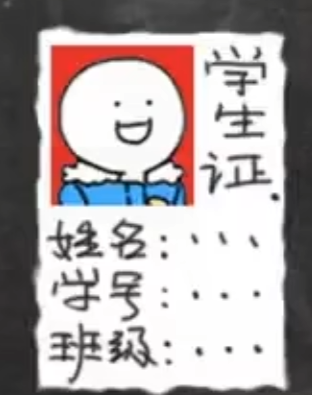 学生证
姓名：...
学号：...
班级：...